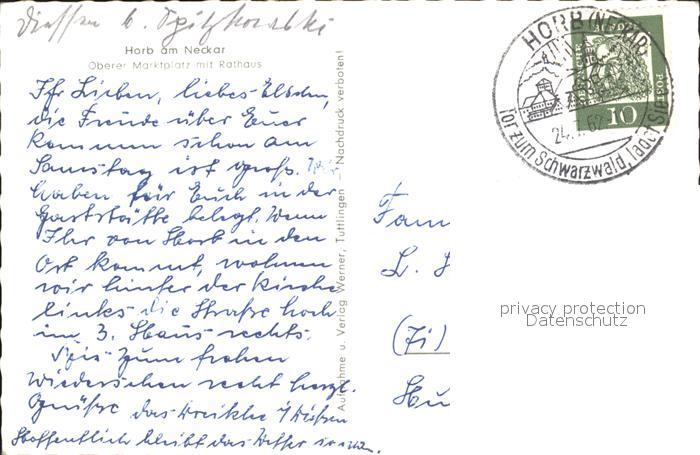 Horb am Neckar
Oberer Marktplatz mit Rathaus
Ihr Lieben, liebes
die Freude über Euer
Kommen schon am
Samstag ist groß. Wir
haben für Euch in der
Gaststätte belegt. Wenn
Ihr von Horb in den
Ort kommt, wohnen
wir hinter der Kirche
links die Straße hoch
im 3. Haus rechts.
Bis zum frohen
Wiedersehen recht herzl.
Grüße das
Hoffentlich bleibt das Wetter
Aufnahme u. Verlag Werner, Tuttlingen Nachdruck verboten!
HORB (NECKAR)
24. 62
Tor zum Schwarzwald, ladet Sie
DEUTSCHE BUNDESPOST
10
Fam
L.
(Zi)
Hu
privacy protection
Datenschutz